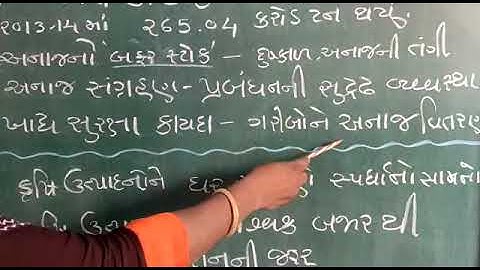 ૨૦૧૩-૧૪ માં ૨૬૫.૦૪ કરોડ ટન થયું.
અનાજનો 'બફર સ્ટોક' – દુષ્કાળ, અનાજની તંગી
અનાજ સંગ્રહણ - પ્રબંધનની સુદ્રઢ વ્યવસ્થા
ખાદ્ય સુરક્ષા કાયદા – ગરીબોને અનાજ વિતરણ
કૃષિ ઉત્પાદનોને સ્પર્ધાનો સામનો
બજાર થી
જરૂર